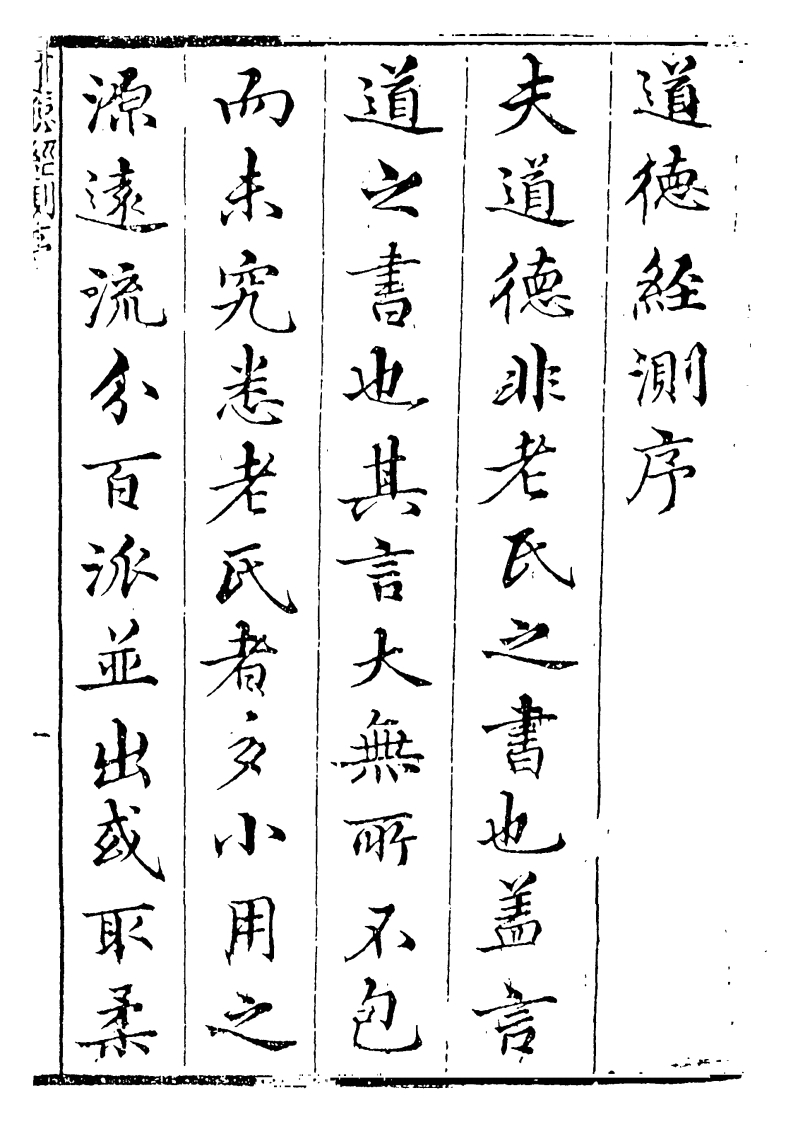 道德經測序
夫道德非老氏之書也盖言
道之書也其言大無所不包
而未究悉老氏者多小用之
源遠流分百派並出或取柔
道德經測序
一